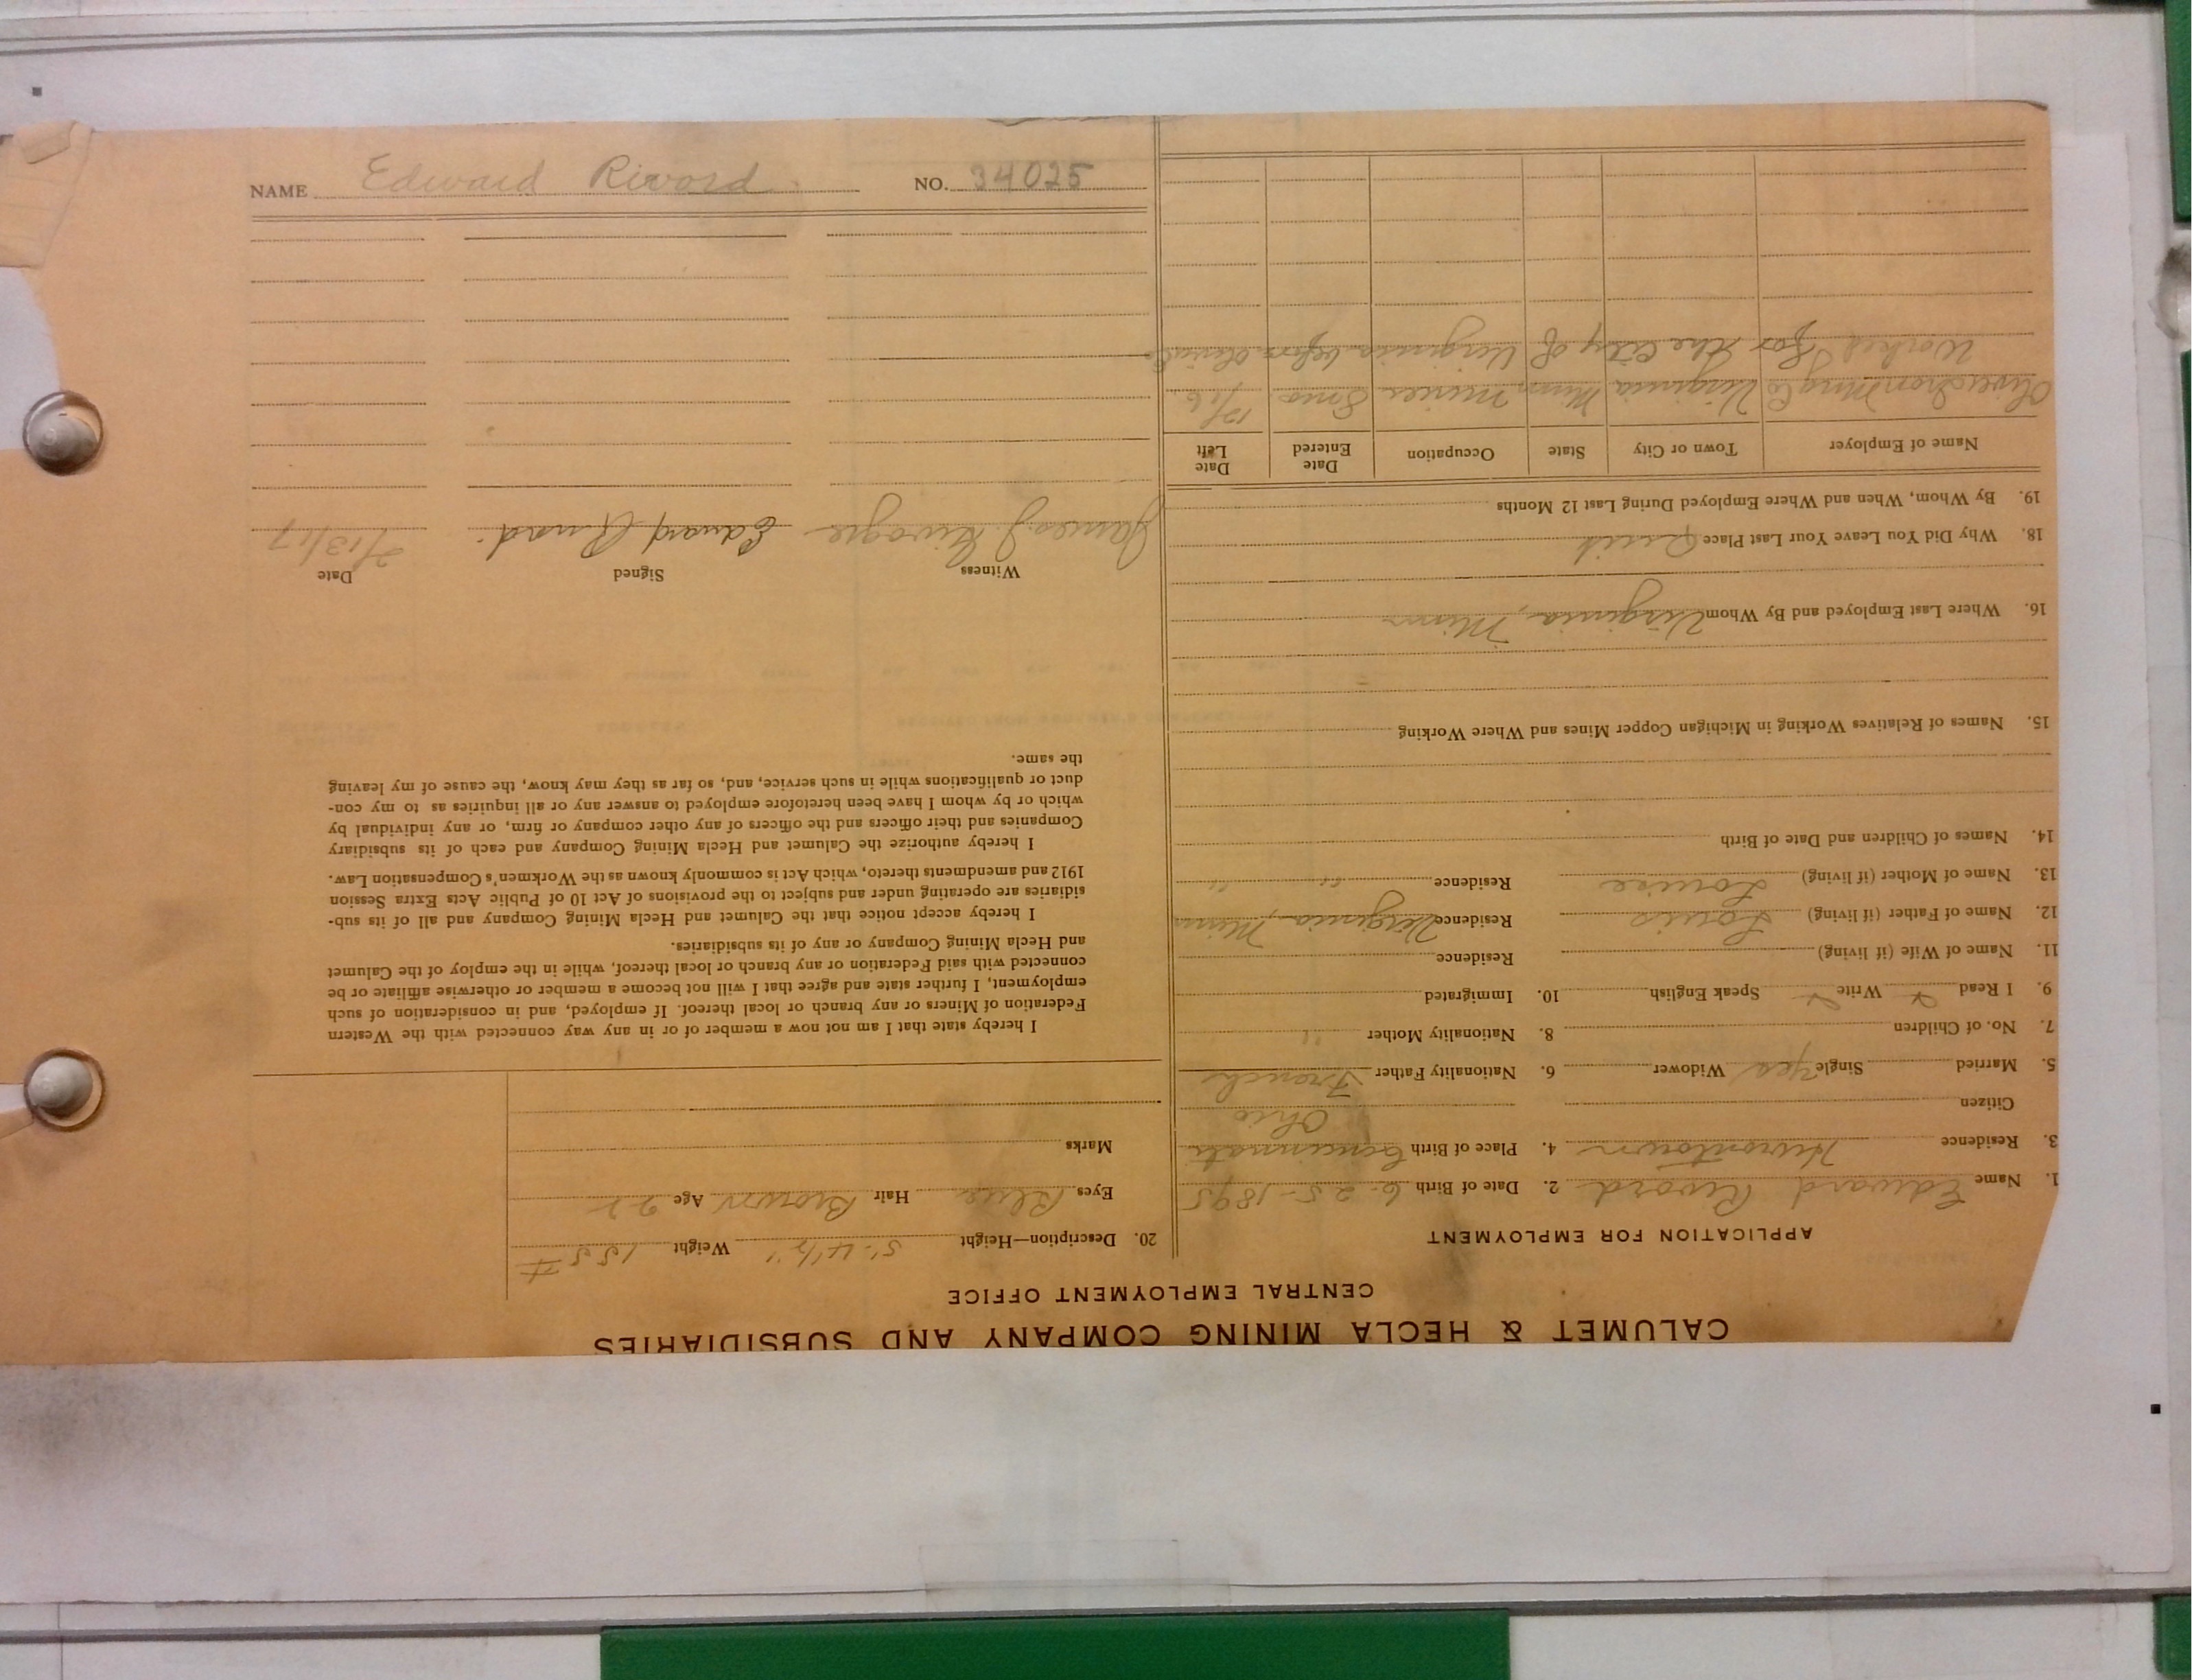 NAME Edward Rivord NO. 34025
CALUMET & HECLA MINING COMPANY AND SUBSIDIARIES
CENTRAL EMPLOYMENT OFFICE
APPLICATION FOR EMPLOYMENT
1. Name Edward Rivord 2. Date of Birth 6-25-1895
3. Residence Hurontown 4. Place of Birth Cincinnati
Ohio
Citizen
5. Married Single Yes Widower 6. Nationality Father French
7. No. of Children 8. Nationality Mother "
9. I Read Write Speak English 10. Immigrated
11. Name of Wife (if living) Residence
12. Name of Father (if living) Louis Residence Virginia, Minn
13. Name of Mother (if living) Louise Residence " "
14. Names of Children and Date of Birth
15. Names of Relatives Working in Michigan Copper Mines and Where Working
16. Where Last Employed and By Whom Virginia, Minn
18. Why Did You Leave Your Last Place Quit
19. By Whom, When and Where Employed During Last 12 Months
Name of Employer Town or City State Occupation Date Entered Date Left
Oliver Iron Mng Co Virginia Minn Miner 8 mos
Worked for the City of Virginia before
20. Description—Height 5'-4½" Weight 155 #
Eyes Blue Hair Brown Age 22
Marks
I hereby state that I am not now a member of or in any way connected with the Western
Federation of Miners or any branch or local thereof. If employed, and in consideration of such
employment, I further state and agree that I will not become a member or otherwise affiliate or be
connected with said Federation or any branch or local thereof, while in the employ of the Calumet
and Hecla Mining Company or any of its subsidiaries.
I hereby accept notice that the Calumet and Hecla Mining Company and all of its sub-
sidiaries are operating under and subject to the provisions of Act 10 of Public Acts Extra Session
1912 and amendments thereto, which Act is commonly known as the Workmen's Compensation Law.
I hereby authorize the Calumet and Hecla Mining Company and each of its subsidiary
Companies and their officers and the officers of any other company or firm, or any individual by
which or by whom I have been heretofore employed to answer any or all inquiries as to my con-
duct or qualifications while in such service, and, so far as they may know, the cause of my leaving
the same.
Witness Signed Date
James J. Edward Rivord. 7/13/17